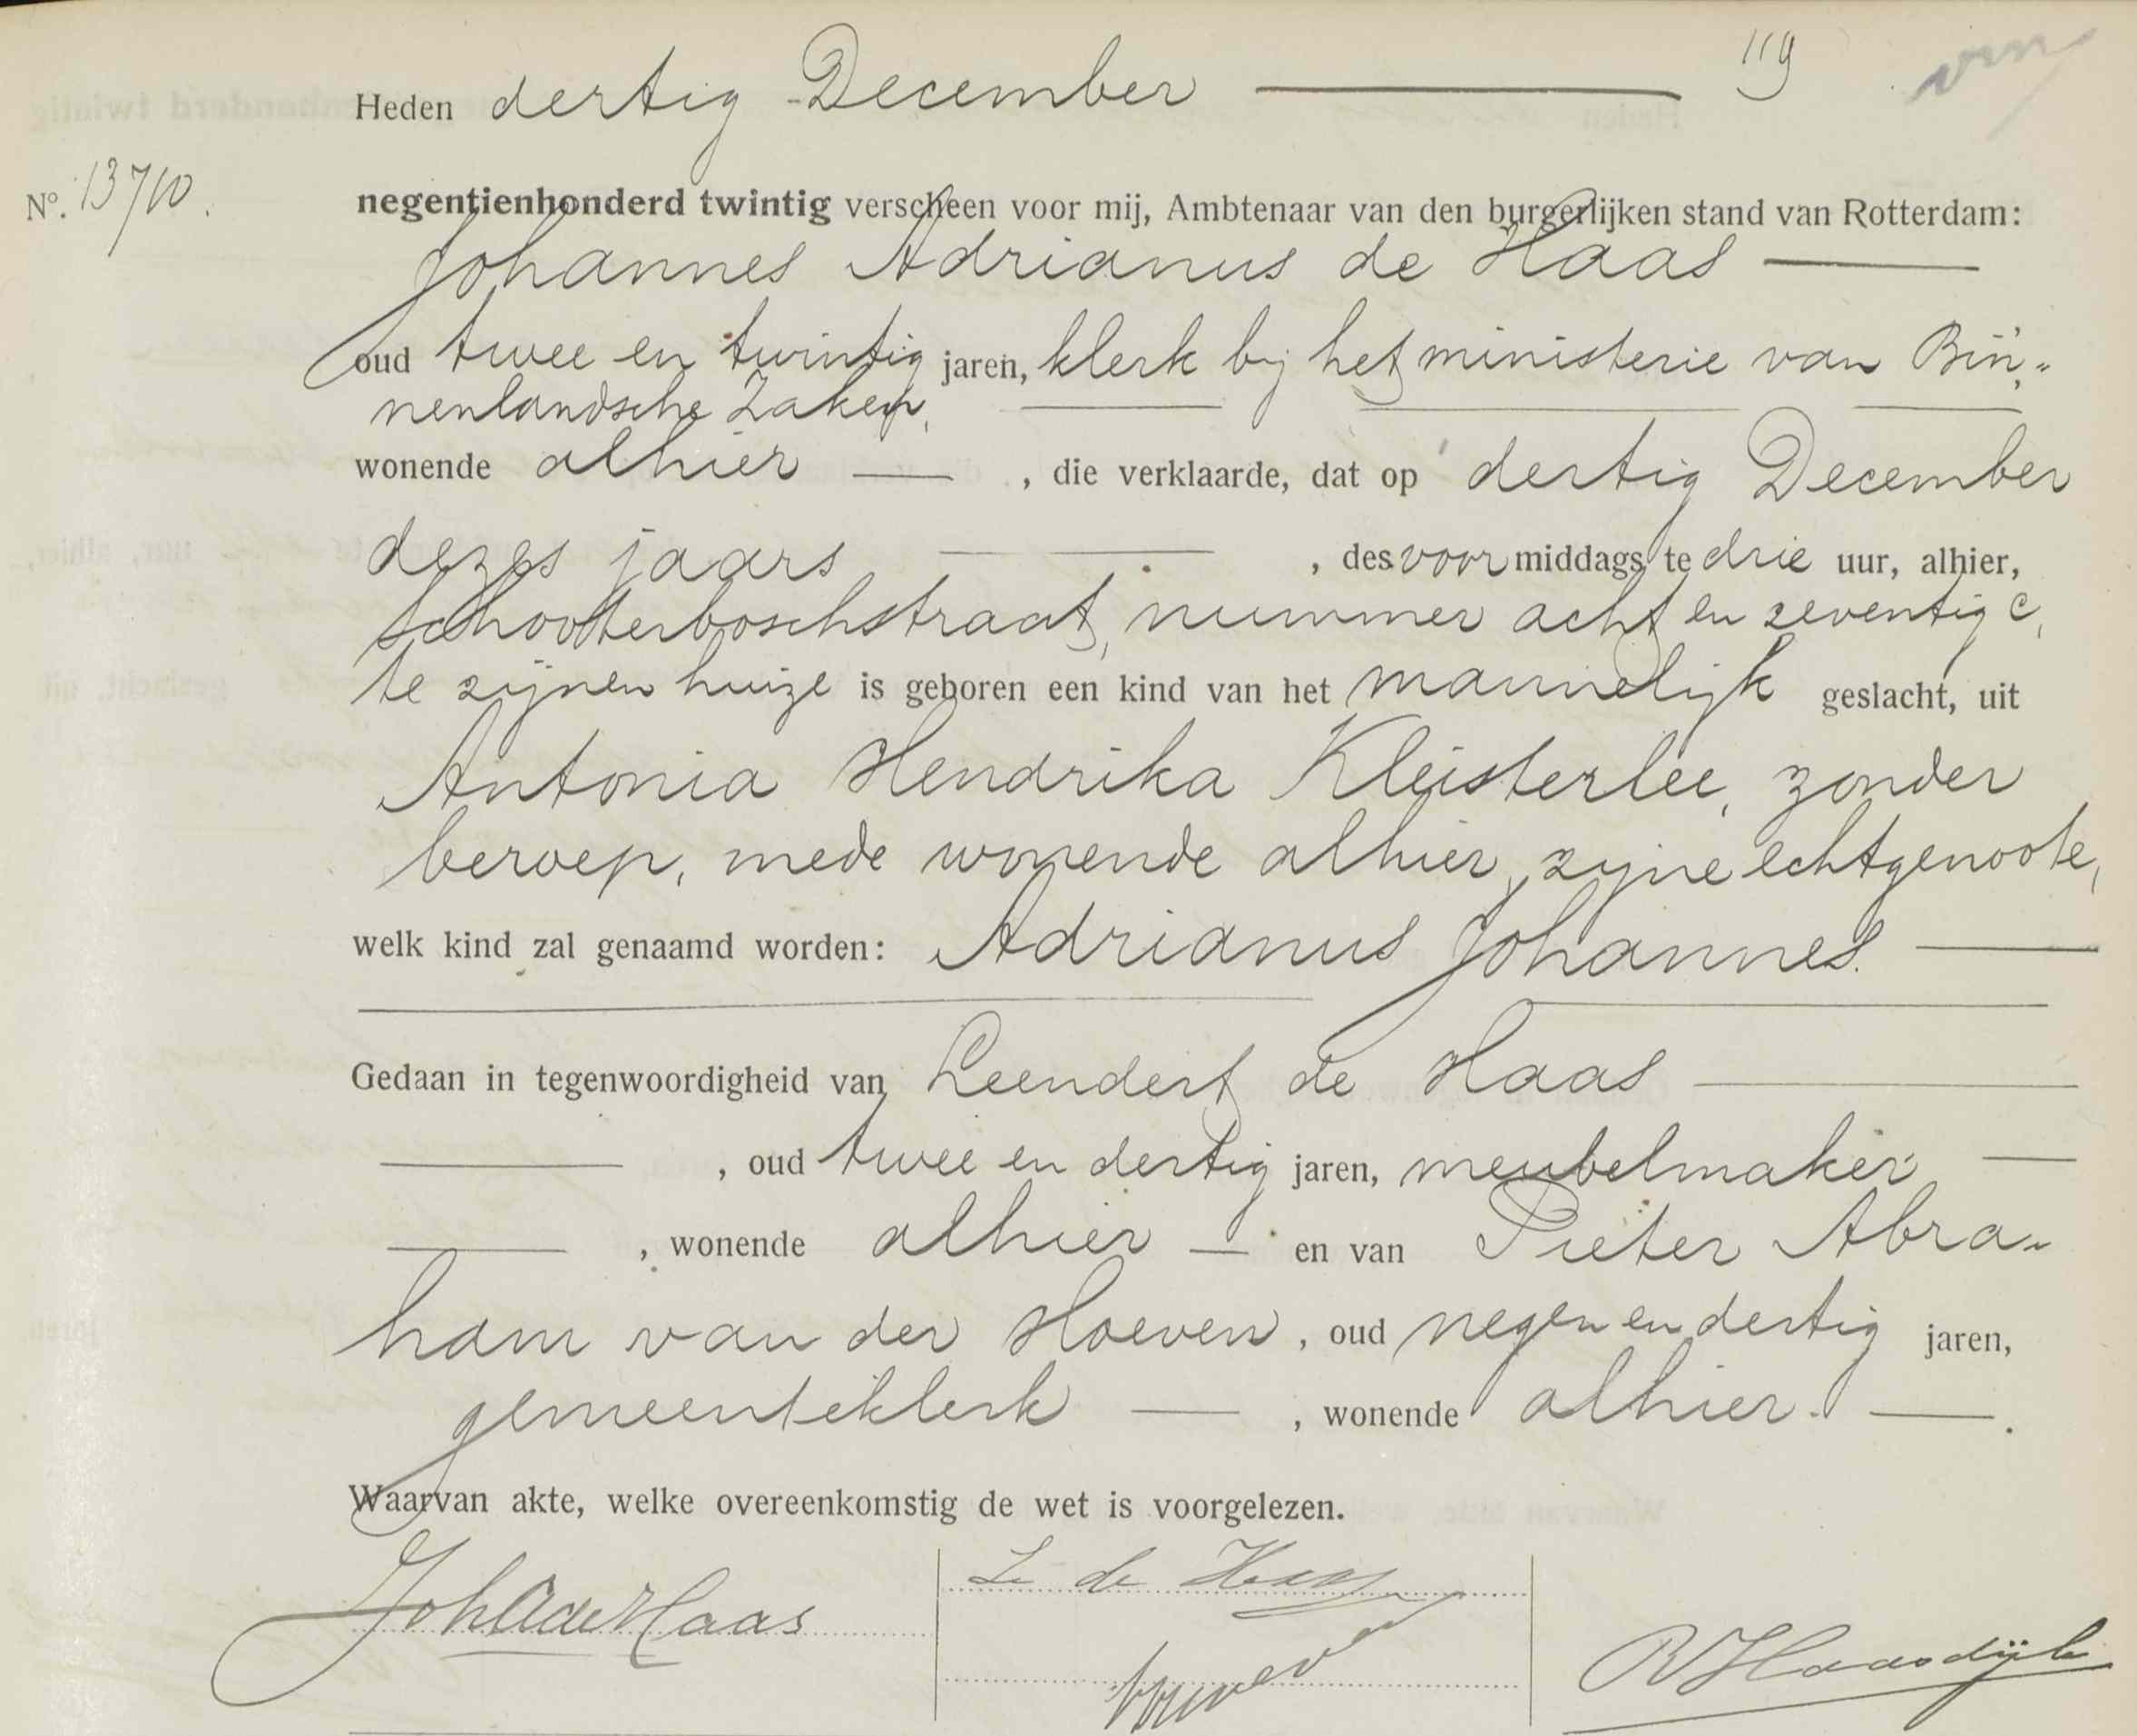 119
Heden dertig December
No. 13710.
negentienhonderd twintig verscheen voor mij, Ambtenaar van den burgerlijken stand van Rotterdam:
Johannes Adrianus de Haas
oud twee en twintig jaren, klerk bij het ministerie van Bin„
nenlandsche Zaken,
wonende alhier , die verklaarde, dat op dertig December
dezes jaars , des voor middags te drie uur, alhier,
Schooterboschstraat, nummer acht en zeventig c,
te zijnen huize is geboren een kind van het mannelijk geslacht, uit
Antonia Hendrika Kleisterlee, zonder
beroep, mede wonende alhier, zijne echtgenoote,
welk kind zal genaamd worden: Adrianus Johannes.
Gedaan in tegenwoordigheid van Leendert de Haas
, oud twee en dertig jaren, meubelmaker
, wonende alhier en van Pieter Abra-
ham van der Hoeven, oud negen en dertig jaren,
gemeenteklerk , wonende alhier.
Waarvan akte, welke overeenkomstig de wet is voorgelezen.
L de Haas
JohAdeHaas
Haasdijk